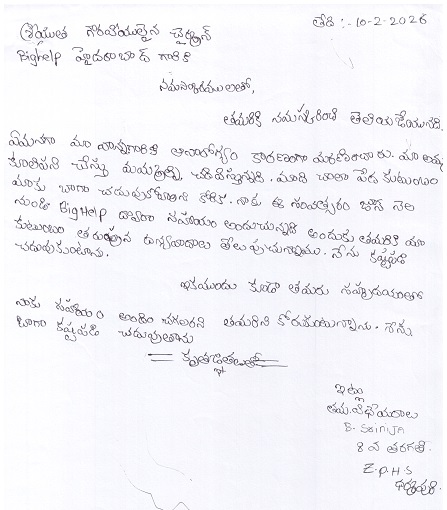 తేది :- 10-2-2026
శ్రీయుత గౌరవనీయులైన చైర్మన్
Bighelp హైదరాబాద్ గారికి
నమస్కారములతో,
తమరికి నమస్కరించి తెలియజేయునది.
ఏమనగా మా నాన్నగారికి అనారోగ్యం కారణంగా మరణించారు. మా అమ్మ
కూలిపని చేస్తు మమ్మల్ని చదివిస్తున్నది. మాది చాలా పేద కుటుంబం
మాకు బాగా చదువుకోవాలని కోరిక. నాకు ఈ సంవత్సరం జూన్ నెల
నుండి BigHelp ద్వారా సహాయం అందుచున్నది అందుకు తమరికి మా
కుటుంబం తరుపున ధన్యవాదాలు తెలుపుచున్నాము. నేను కష్టపడి
చదువుకుంటాను.
ఇకముందు కూడా తమరు సహృదయంతో
నాకు సహాయం అందించగలరని తమరిని కోరుకుంటున్నాను. నేను
బాగా కష్టపడి చదువుతాను
కృతజ్ఞతలతో
ఇట్లు
తమ విధేయురాలు
B. Srinija
8 వ తరగతి
Z.P.H.S
ధర్మపురి.